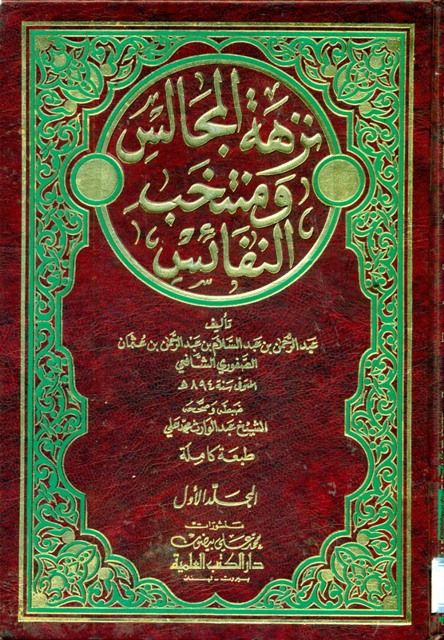 نزهة المجالس
ومنتخب
النفائس
تأليف
عبد الرحمن بن عبد السلام بن عبد الرحمن بن عثمان
الصفوري الشافعي
المتوفى سنة ٨٩٤هـ
ضبطه وصححه
الشيخ عبد الوارث محمد علي
طبعة كاملة
المجلد الأول
منشورات
محمد علي بيضون
دار الكتب العلمية
بيروت - لبنان